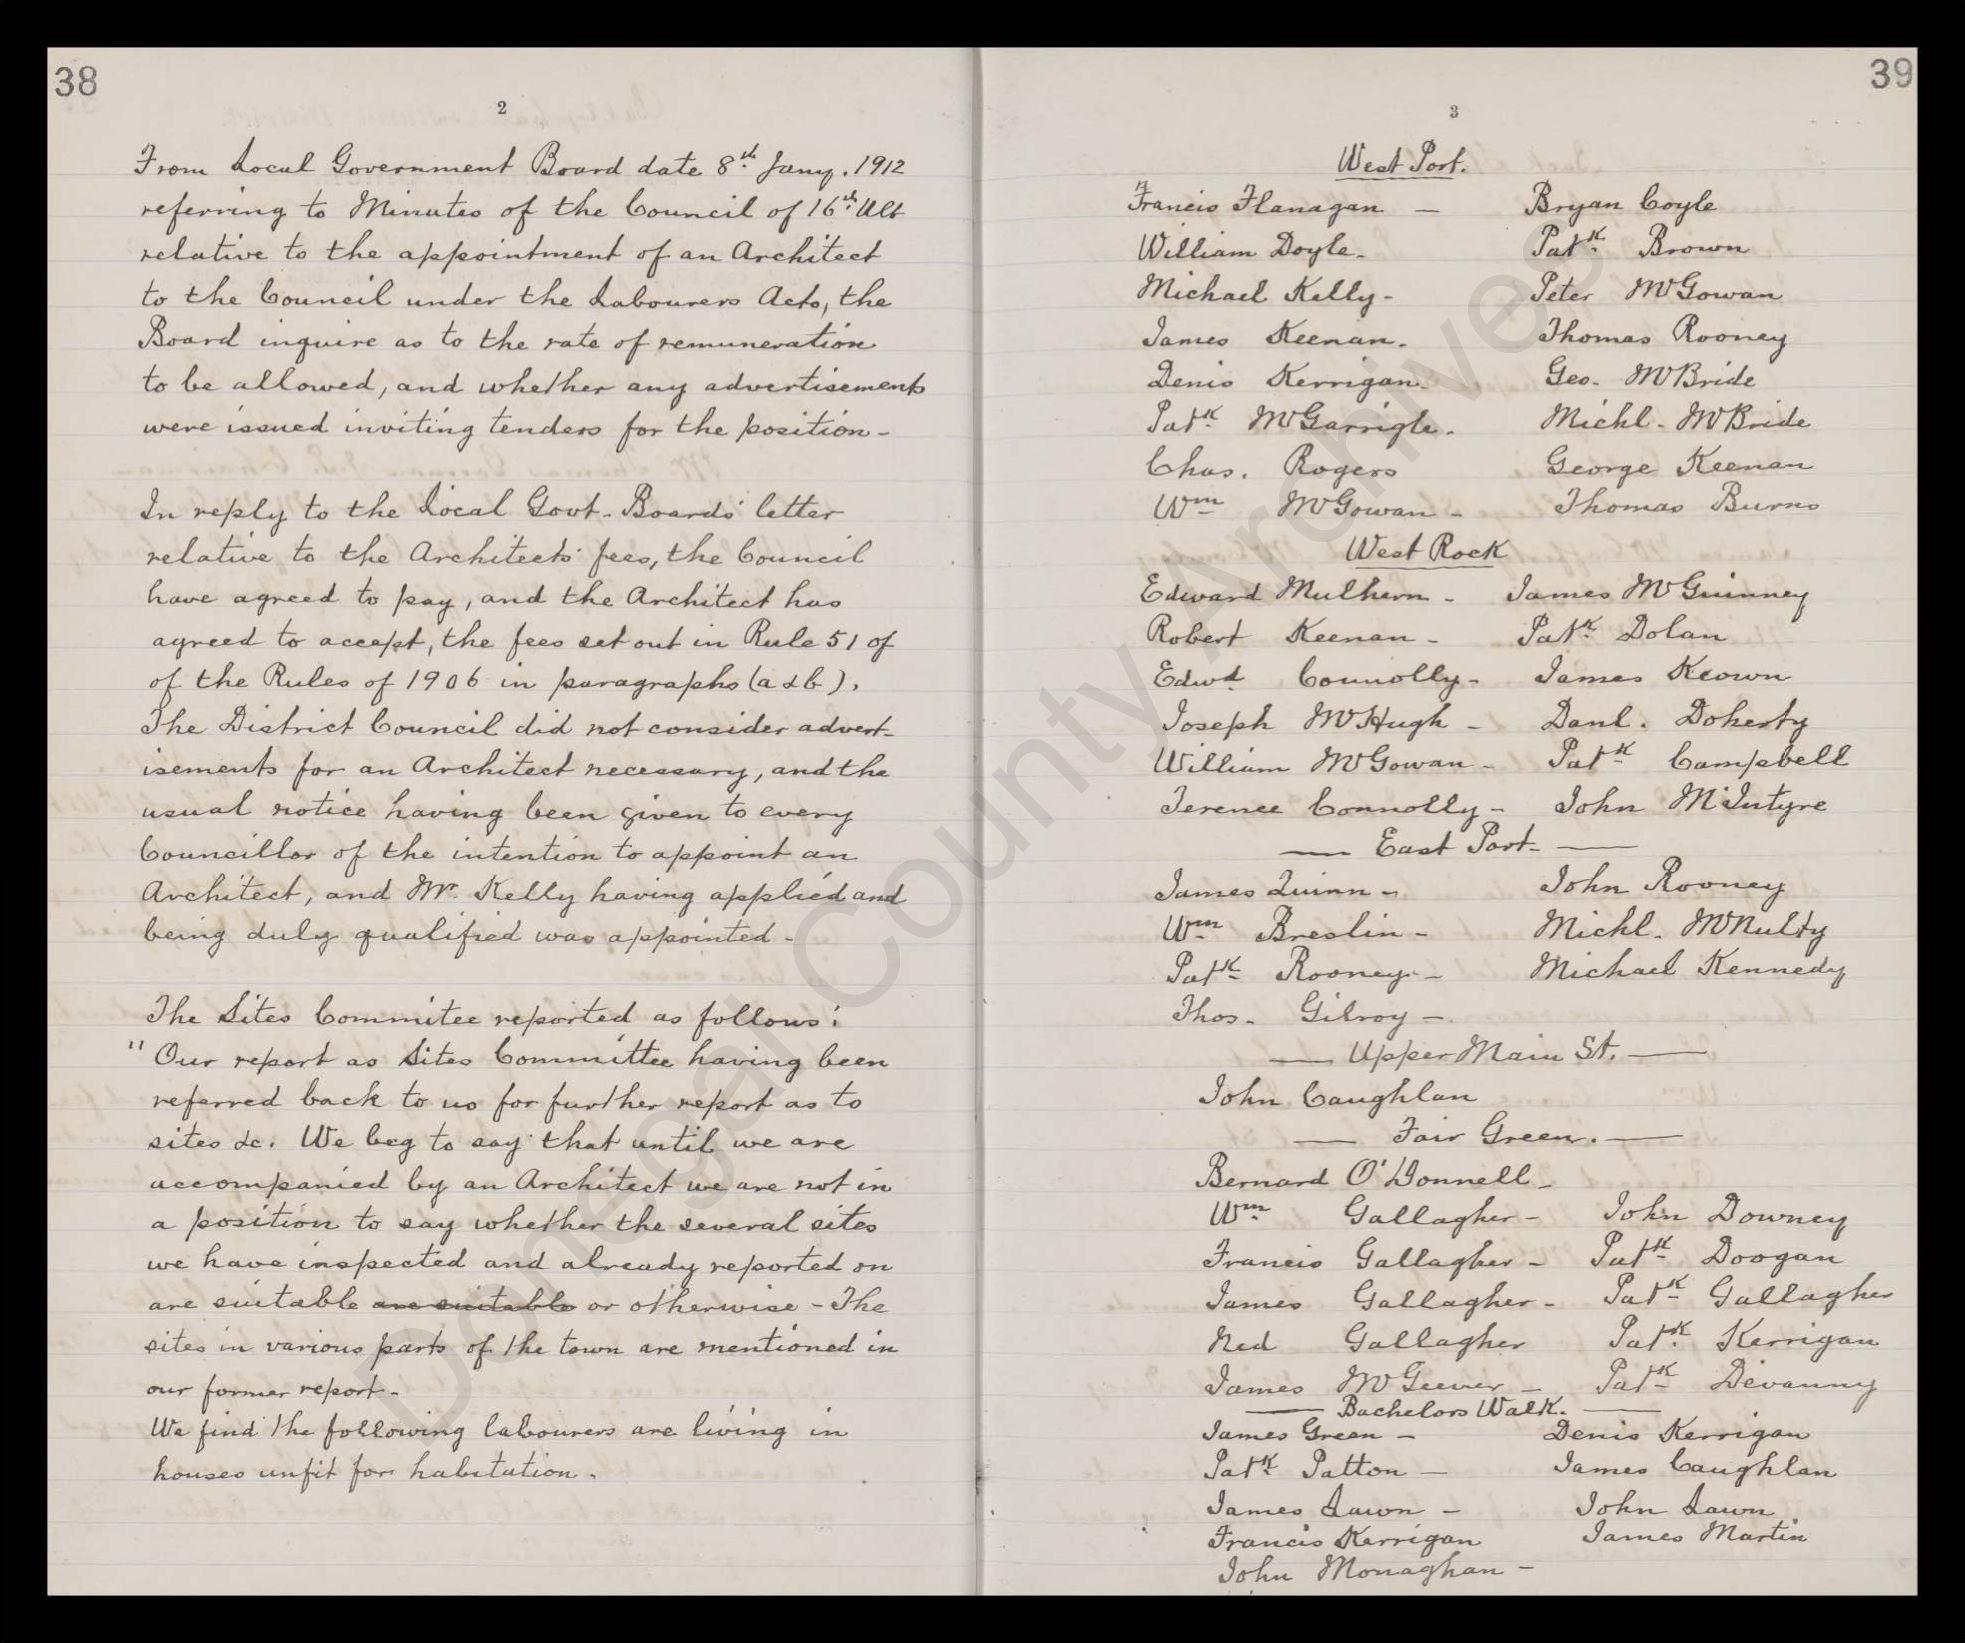 38
2
From Local Government Board date 8th Jany. 1912
referring to Minutes of the Council of 16th Ult
relative to the appointment of an Architect
to the Council under the Labourers Acts, the
Board inquire as to the rate of remuneration
to be allowed, and whether any advertisements
were issued inviting tenders for the position -
In reply to the Local Govt. Boards' letter
relative to the Architects' fees, the Council
have agreed to pay, and the Architect has
agreed to accept, the fees set out in Rule 51 of
of the Rules of 1906 in paragraphs (a & b).
The District Council did not consider advert-
isements for an Architect necessary, and the
usual notice having been given to every
Councillor of the intention to appoint an
Architect, and Mr. Kelly having applied and
being duly qualified was appointed -
The Sites Commitee reported as follows:
"Our report as Sites Committee having been
referred back to us for further report as to
sites &c. We beg to say that until we are
accompanied by an Architect we are not in
a position to say whether the several sites
we have inspected and already reported on
are suitable are suitable or otherwise - The
sites in various parts of the town are mentioned in
our former report -
We find the following labourers are living in
houses unfit for habitation.
39
3
West Port.
Francis Flanagan - Bryan Coyle
William Doyle - Patk Brown
Michael Kelly - Peter McGowan
James Keenan. Thomas Rooney
Denis Kerrigan. Geo. McBride
Patk McGarrigle. Michl. McBride
Chas. Rogers George Keenan
Wm McGowan - Thomas Burns
West Rock
Edward Mulhern - James McGuinney
Robert Keenan - Patk Dolan
Edwd Connolly - James Keown
Joseph McHugh - Danl. Doherty
William McGowan - Patk Campbell
Terence Connolly - John McIntyre
— East Port. —
James Quinn - John Rooney
Wm Breslin - Michl. McNulty
Patk Rooney - Michael Kennedy
Thos. Gilroy -
— Upper Main St. —
John Caughlan
— Fair Green. —
Bernard O'Donnell -
Wm Gallagher - John Downey
Francis Gallagher - Patk Doogan
James Gallagher - Patk Gallagher
Ned Gallagher Patk Kerrigan
James McGeever - Patk Devanny
— Bachelors Walk. —
James Green - Denis Kerrigan
Patk Patton - James Caughlan
James Lawn - John Lawn
Francis Kerrigan James Martin
John Monaghan -
Donegal County Archives